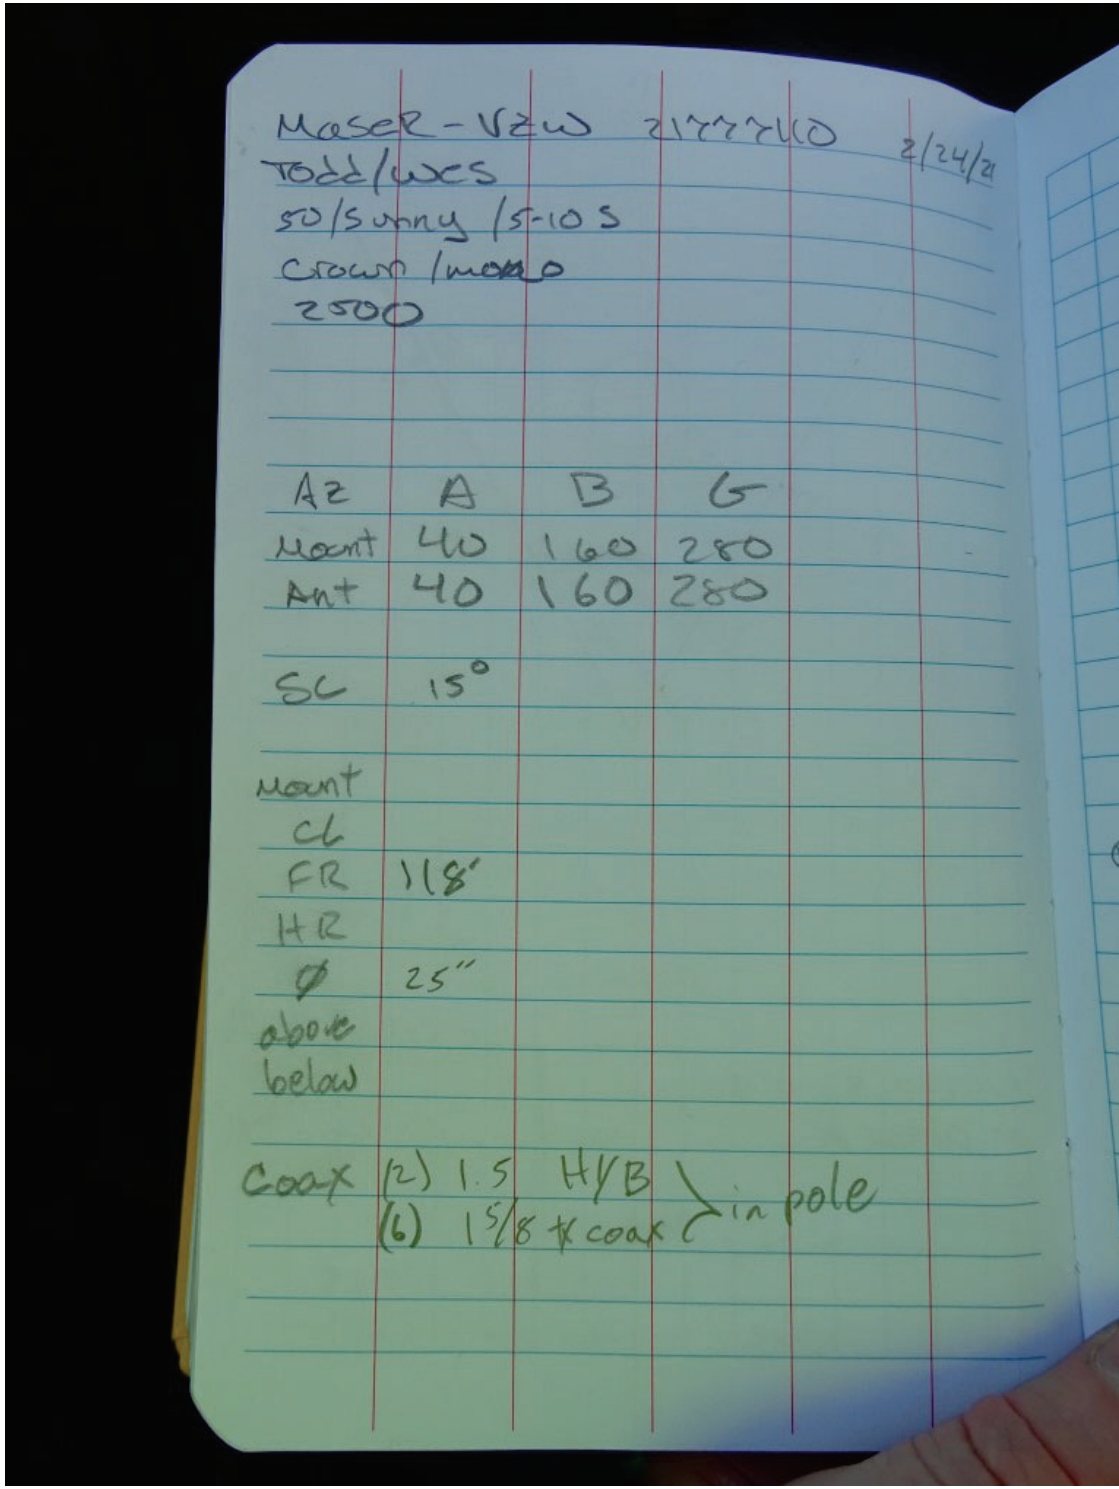 MaseR - VZW 2/24/21
Todd/Wes
50/Sunny/5-10 S
Crown/mono
2500
AZ A B G
Mount 40 160 280
Ant 40 160 280
SC 15°
Mount
CL
FR 118'
HR
Ø 25"
above
below
Coax (2) 1.5 HYB } in pole
(6) 1 5/8 tx coax